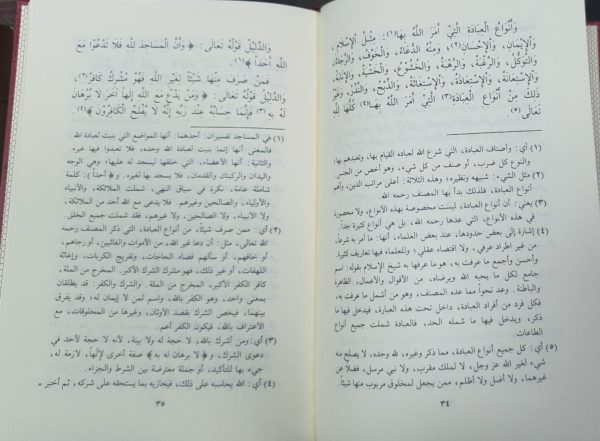 وَأَنْوَاعُ الْعِبَادَةِ الَّتِيْ أَمَرَ اللَّهُ بِهَا(١): مِثْلُ الْإِسْلَامِ،
وَالْإِيْمَانِ، وَالْإِحْسَانِ(٢)؛ وَمِنْهُ الدُّعَاءُ، وَالْخَوْفُ، وَالرَّجَاءُ،
وَالتَّوَكُّلُ، وَالرَّغْبَةُ، وَالرَّهْبَةُ، وَالْخُشُوْعُ، وَالْخَشْيَةُ، وَالْإِنَابَةُ،
وَالْإِسْتِعَانَةُ، وَالْإِسْتِعَاذَةُ، وَالْإِسْتِغَاثَةُ، وَالذَّبْحُ، وَالنَّذْرُ، وَغَيْرُ
ذَلِكَ مِنْ أَنْوَاعِ الْعِبَادَةِ(٣) الَّتِيْ أَمَرَ اللَّهُ بِهَا(٤)؛ كُلُّهَا لِلَّهِ
تَعَالَى(٥).
(١) أي: وأصناف العبادة، التي شرع الله لعباده القيام بها، وتعبدهم بها؛
والنوع كل ضرب، أو صنف من كل شيء، وهو أخص من الجنس.
(٢) مثل الشيء: شبيهه ونظيره؛ وهذه الثلاثة: أعلى مراتب الدين، وأهم
أنواع العبادة، فلذلك بدأ بها المصنف رحمه الله.
(٣) يعني: أن أنواع العبادة، ليست مخصوصة بهذه الأنواع، ولا محصورة
في هذه الأنواع، التي عدها رحمه الله، بل هي أنواع كثيرة جدا.
(٤) إشارة إلى بعض حدودها، عند بعض العلماء، أنها: ما أمر به شرعاً،
من غير اطراد عرفي، ولا اقتضاء عقلي؛ وللعلماء فيها تعاريف كثيرة.
وأحسن وأجمع ما عرفت به، هو ما عرفها به شيخ الإسلام بقوله: اسم
جامع لكل ما يحبه الله ويرضاه، من الأقوال والأعمال، الظاهرة
والباطنة. وعد نحواً مما عده المصنف، وهو من أشمل ما عرفت به،
فكل فرد من أفراد العبادة، داخل تحت هذه العبارة، فيدخل فيها ما
ذكر، ويدخل فيها ما شمله الحد، فالعبادة شملت جميع أنواع
الطاعات.
(٥) أي: كل جميع أنواع العبادة، مما ذكر وغيره، لله وحده، لا يصلح منه
شيء لغير الله عز وجل، لا لملك مقرب، ولا نبي مرسل، فضلاً عن
غيرهما، ولا أضل ولا أظلم، ممن يجعل لمخلوق مربوب منها شيئا.
٣٤
وَالدَّلِيْلُ قَوْلُهُ تَعَالَى: ﴿ وَأَنَّ الْمَسَاجِدَ لِلَّهِ فَلَا تَدْعُوْا مَعَ
اللَّهِ أَحَداً ﴾(١).
فَمَنْ صَرَفَ مِنْهَا شَيْئاً لِغَيْرِ اللَّهِ فَهُوَ مُشْرِكٌ كَافِرٌ(٢)،
وَالدَّلِيْلُ قَوْلُهُ تَعَالَى: ﴿ وَمَنْ يَدْعُ مَعَ اللَّهِ إِلٰهاً آخَرَ لَا بُرْهَانَ
لَهُ بِهِ (٣) فَإِنَّمَا حِسَابُهُ عِنْدَ رَبِّهِ إِنَّهُ لَا يُفْلِحُ الْكَافِرُوْنَ ﴾(٤).
(١) في المساجد تفسيران: أحدهما: أنها المواضع التي بنيت لعبادة الله،
فالمعنى أنها إنما بنيت لعبادة الله وحده، فلا تعبدوا فيها غيره.
والثانية: أنها الأعضاء، التي خلقها ليسجد له عليها؛ وهي الوجه
واليدان والركبتان والقدمان، فلا يسجد بها لغيره. و﴿ أحداً ﴾ كلمة
شاملة عامة، نكرة في سياق النهي، شملت الملائكة، والأنبياء
والأولياء، والصالحين وغيرهم. فلا يدعى مع الله أحد من الملائكة،
ولا الأنبياء، ولا الصالحين، ولا غيرهم، فقد شملت جميع الخلق.
(٢) أي: ممن صرف شيئا، من أنواع العبادة، التي ذكر المصنف رحمه
الله تعالى، مثل: أن دعا غير الله، من الأموات والغائبين، أو رجاهم،
أو خافهم، أو سألهم قضاء الحاجات، وتفريج الكربات، وإغاثة
اللهفات، أو غير ذلك، فهو مشرك الشرك الأكبر، المخرج من الملة،
كافر الكفر الأكبر، المخرج من الملة. والشرك والكفر: قد يطلقان
بمعنى واحد، وهو الكفر بالله، واسم لمن لا إيمان له؛ وقد يفرق
بينهما، فيخص الشرك بقصد الأوثان، وغيرها من المخلوقات، مع
الاعتراف بالله، فيكون الكفر أعم.
(٣) أي: ومن أشرك بالله، لا حجة له ولا بينة، لأنه لا حجة لأحد في
دعوى الشرك، و﴿ لا برهان له به ﴾ صفة أخرى لإلٰهاً، لازمة له،
جيء بها للتأكيد، أو جملة معترضة بين الشرط والجزاء.
(٤) أي: الله يحاسبه على ذلك، فيجازيه بما يستحقه على شركه، ثم أخبر =
٣٥